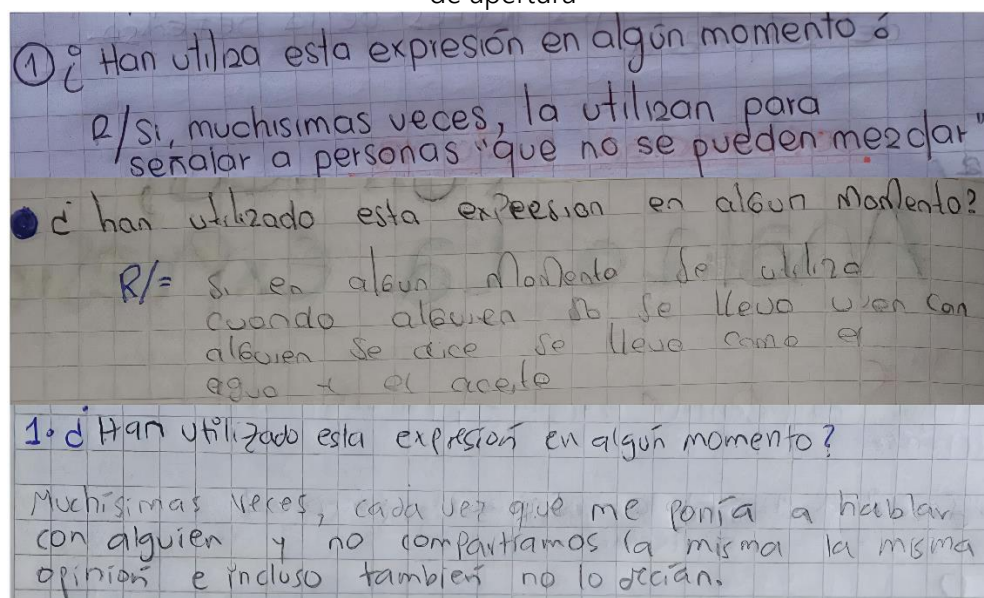 de apertura
① ¿ Han utiliza esta expresión en algún momento ?
R/ Si, muchisimas veces, la utilizan para
señalar a personas "que no se pueden mezclar"
¿ han utilizado esta expresion en algun Momento?
R/= Si en algun Momento se utiliza
cuando alguien no se lleva vien con
alguien se dice se lleva como el
agua y el aceite
1. ¿ Han utilizado esta expresión en algún momento?
Muchísimas veces, cada vez que me ponía a hablar
con alguien y no compartíamos la misma la misma
opinión e incluso también no lo decían.